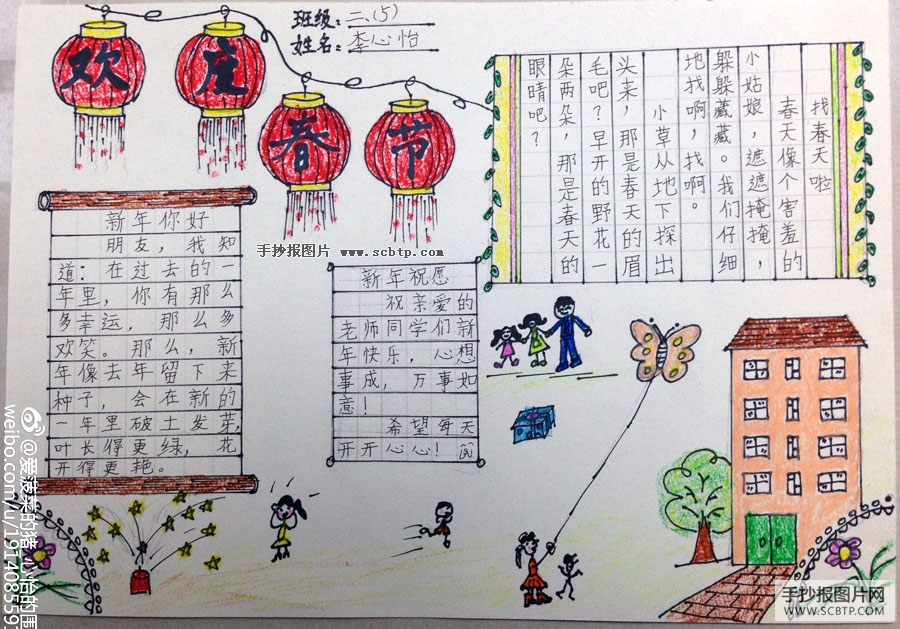 班级：二、(5)
姓名：李心怡
欢度春节
找春天啦
春天像个害羞的
小姑娘，遮遮掩掩，
躲躲藏藏。我们仔细
地找啊，找啊。
小草从地下探出
头来，那是春天的眉
毛吧？早开的野花一
朵两朵，那是春天的
眼晴吧？
新年你好
朋友，我知
道：在过去的一
年里，你有那么
多幸运，那么多
欢笑。那么，新
年像去年留下来
种子，会在新的
一年里破土发芽,
叶长得更绿，花
开得更艳。
手抄报图片 www.scbtp.com
新年祝愿
祝亲爱的
老师同学们新
年快乐，心想
事成，万事如
意！
希望每天
开开心心！
weibo.com/u/19140855
手抄报图片网
WWW.SCBTP.COM